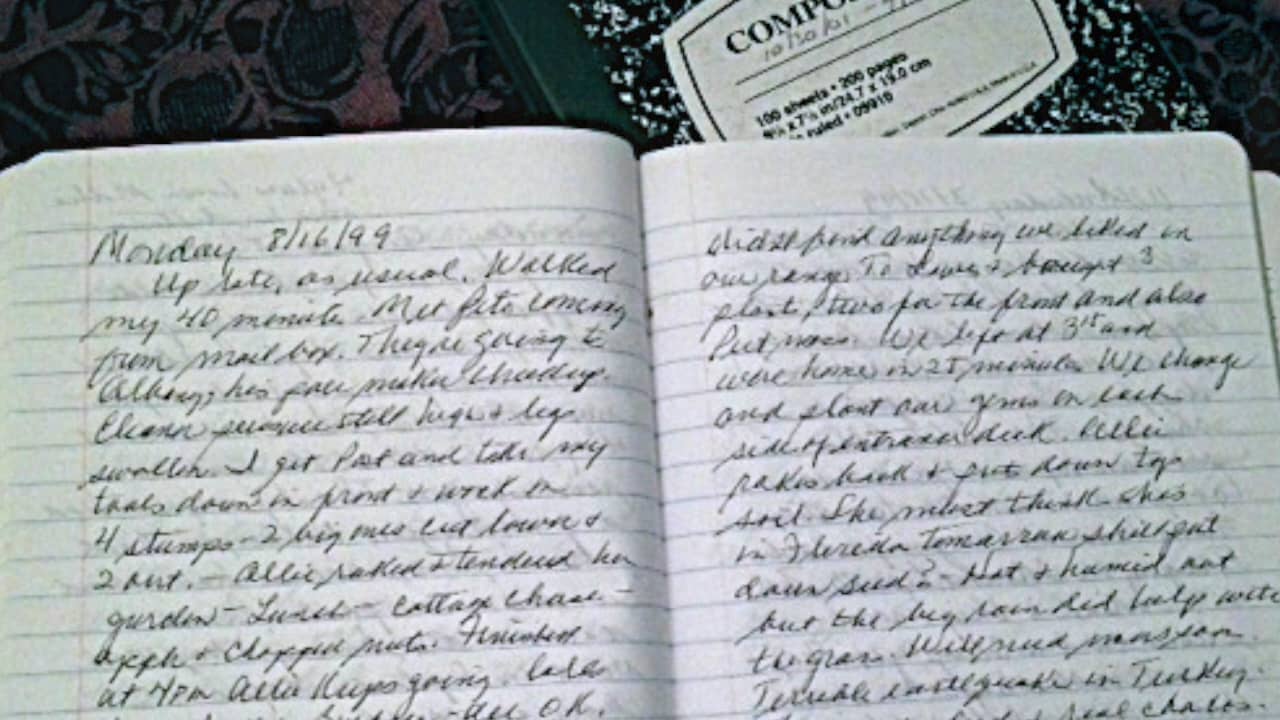 COMPOS
10/30/01 -
100 sheets • 200 pages
9¾ x 7½ in/24.7 x 19.0 cm
ruled • 09910
Monday 8/16/99
Up late, as usual. Walked
my 40 minute. Met Pete coming
from mail box. They're going to
Albany, his pace maker checkup.
Eleanor pressure still high + legs
swollen. I get Post and take my
tools down in front + work on
4 stumps - 2 big ones cut down +
2 out. - Allie raked + tended her
garden - Lunch - Cottage cheese -
apple + chopped nuts. Finished
at 4pm Allie keeps going.
OK.
didn't find anything we liked in
our range. To Lowes + bought 3
plants, two for the front and also
Peet moss. We left at 3 15 and
were home in 25 minutes. We change
and plant our gems on each
side of entrance deck. Allie
rakes back + puts down top
soil. She must think she's
in Florida. Tomorrow she'll put
down seed? - Hot + humid out
but the big rain did help with
the grass. Will need monsoon.
Terrible earthquake in Turkey.
real chaos.